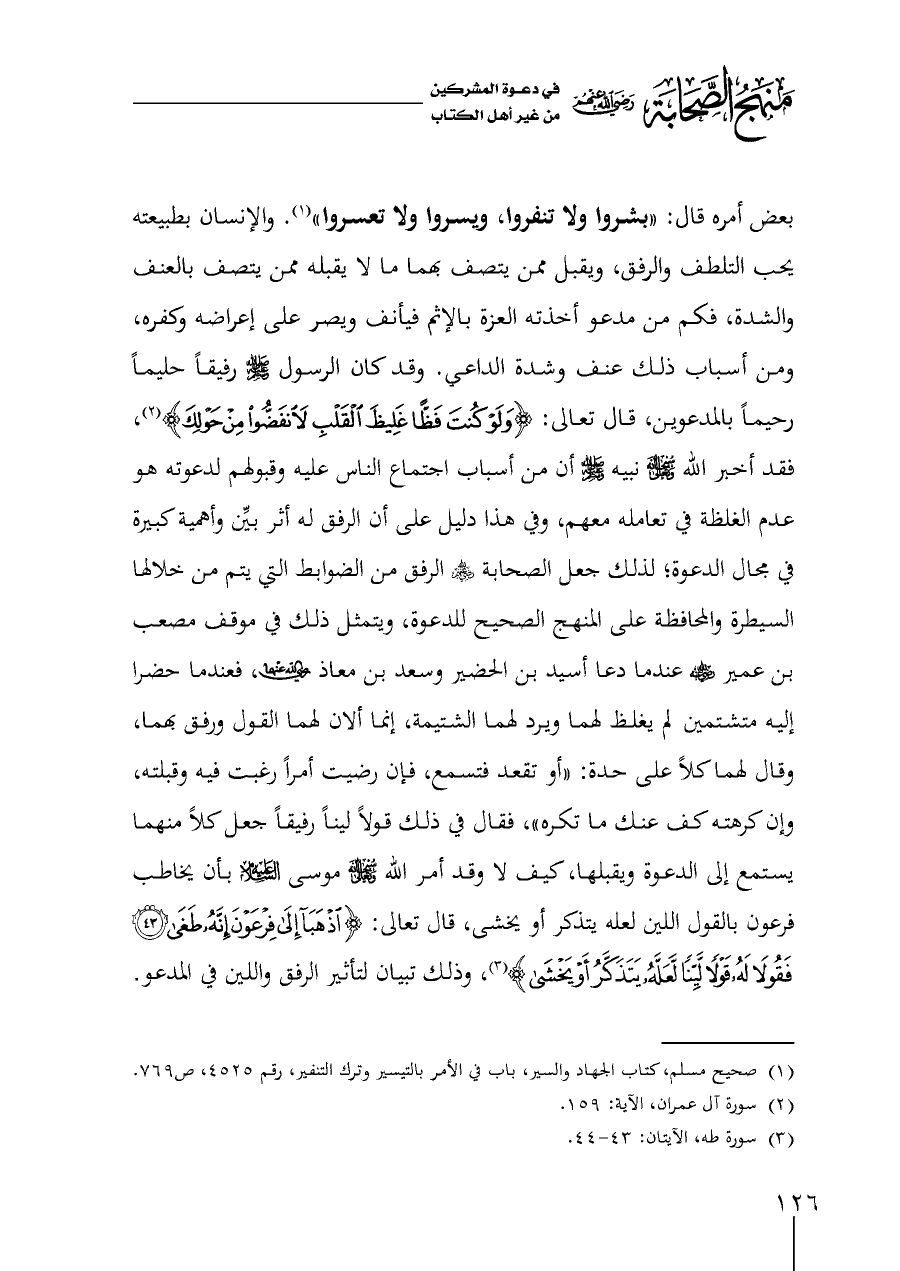 منهج الصحابة رضي الله عنهم
في دعوة المشركين
من غير أهل الكتاب
بعض أمره قال: «بشروا ولا تنفروا، ويسروا ولا تعسروا»(١). والإنسان بطبيعته
يحب التلطف والرفق، ويقبل ممن يتصف بهما ما لا يقبله ممن يتصف بالعنف
والشدة، فكم من مدعو أخذته العزة بالإثم فيأنف ويصر على إعراضه وكفره،
ومن أسباب ذلك عنف وشدة الداعي. وقد كان الرسول ﷺ رفيقاً حليماً
رحيماً بالمدعوين، قال تعالى: ﴿وَلَوْ كُنتَ فَظًّا غَلِيظَ ٱلْقَلْبِ لَٱنفَضُّوا۟ مِنْ حَوْلِكَ﴾(٢)،
فقد أخبر الله ﷻ نبيه ﷺ أن من أسباب اجتماع الناس عليه وقبولهم لدعوته هو
عدم الغلظة في تعامله معهم، وفي هذا دليل على أن الرفق له أثر بيِّن وأهمية كبيرة
في مجال الدعوة؛ لذلك جعل الصحابة رضي الله عنهم الرفق من الضوابط التي يتم من خلالها
السيطرة والمحافظة على المنهج الصحيح للدعوة، ويتمثل ذلك في موقف مصعب
بن عمير رضي الله عنه عندما دعا أسيد بن الحضير وسعد بن معاذ رضي الله عنهما، فعندما حضرا
إليه متشتمين لم يغلظ لهما ويرد لهما الشتيمة، إنما ألان لهما القول ورفق بهما،
وقال لهما كلاً على حدة: «أو تقعد فتسمع، فإن رضيت أمراً رغبت فيه وقبلته،
وإن كرهته كف عنك ما تكره»، فقال في ذلك قولاً ليناً رفيقاً جعل كلاً منهما
يستمع إلى الدعوة ويقبلها، كيف لا وقد أمر الله ﷻ موسى عليه السلام بأن يخاطب
فرعون بالقول اللين لعله يتذكر أو يخشى، قال تعالى: ﴿ٱذْهَبَآ إِلَىٰ فِرْعَوْنَ إِنَّهُۥ طَغَىٰ ۝٤٣
فَقُولَا لَهُۥ قَوْلًا لَّيِّنًا لَّعَلَّهُۥ يَتَذَكَّرُ أَوْ يَخْشَىٰ﴾(٣)، وذلك تبيان لتأثير الرفق واللين في المدعو.
(١) صحيح مسلم، كتاب الجهاد والسير، باب في الأمر بالتيسير وترك التنفير، رقم ٤٥٢٥، ص٧٦٩.
(٢) سورة آل عمران، الآية: ١٥٩.
(٣) سورة طه، الآيتان: ٤٣-٤٤.
١٢٦